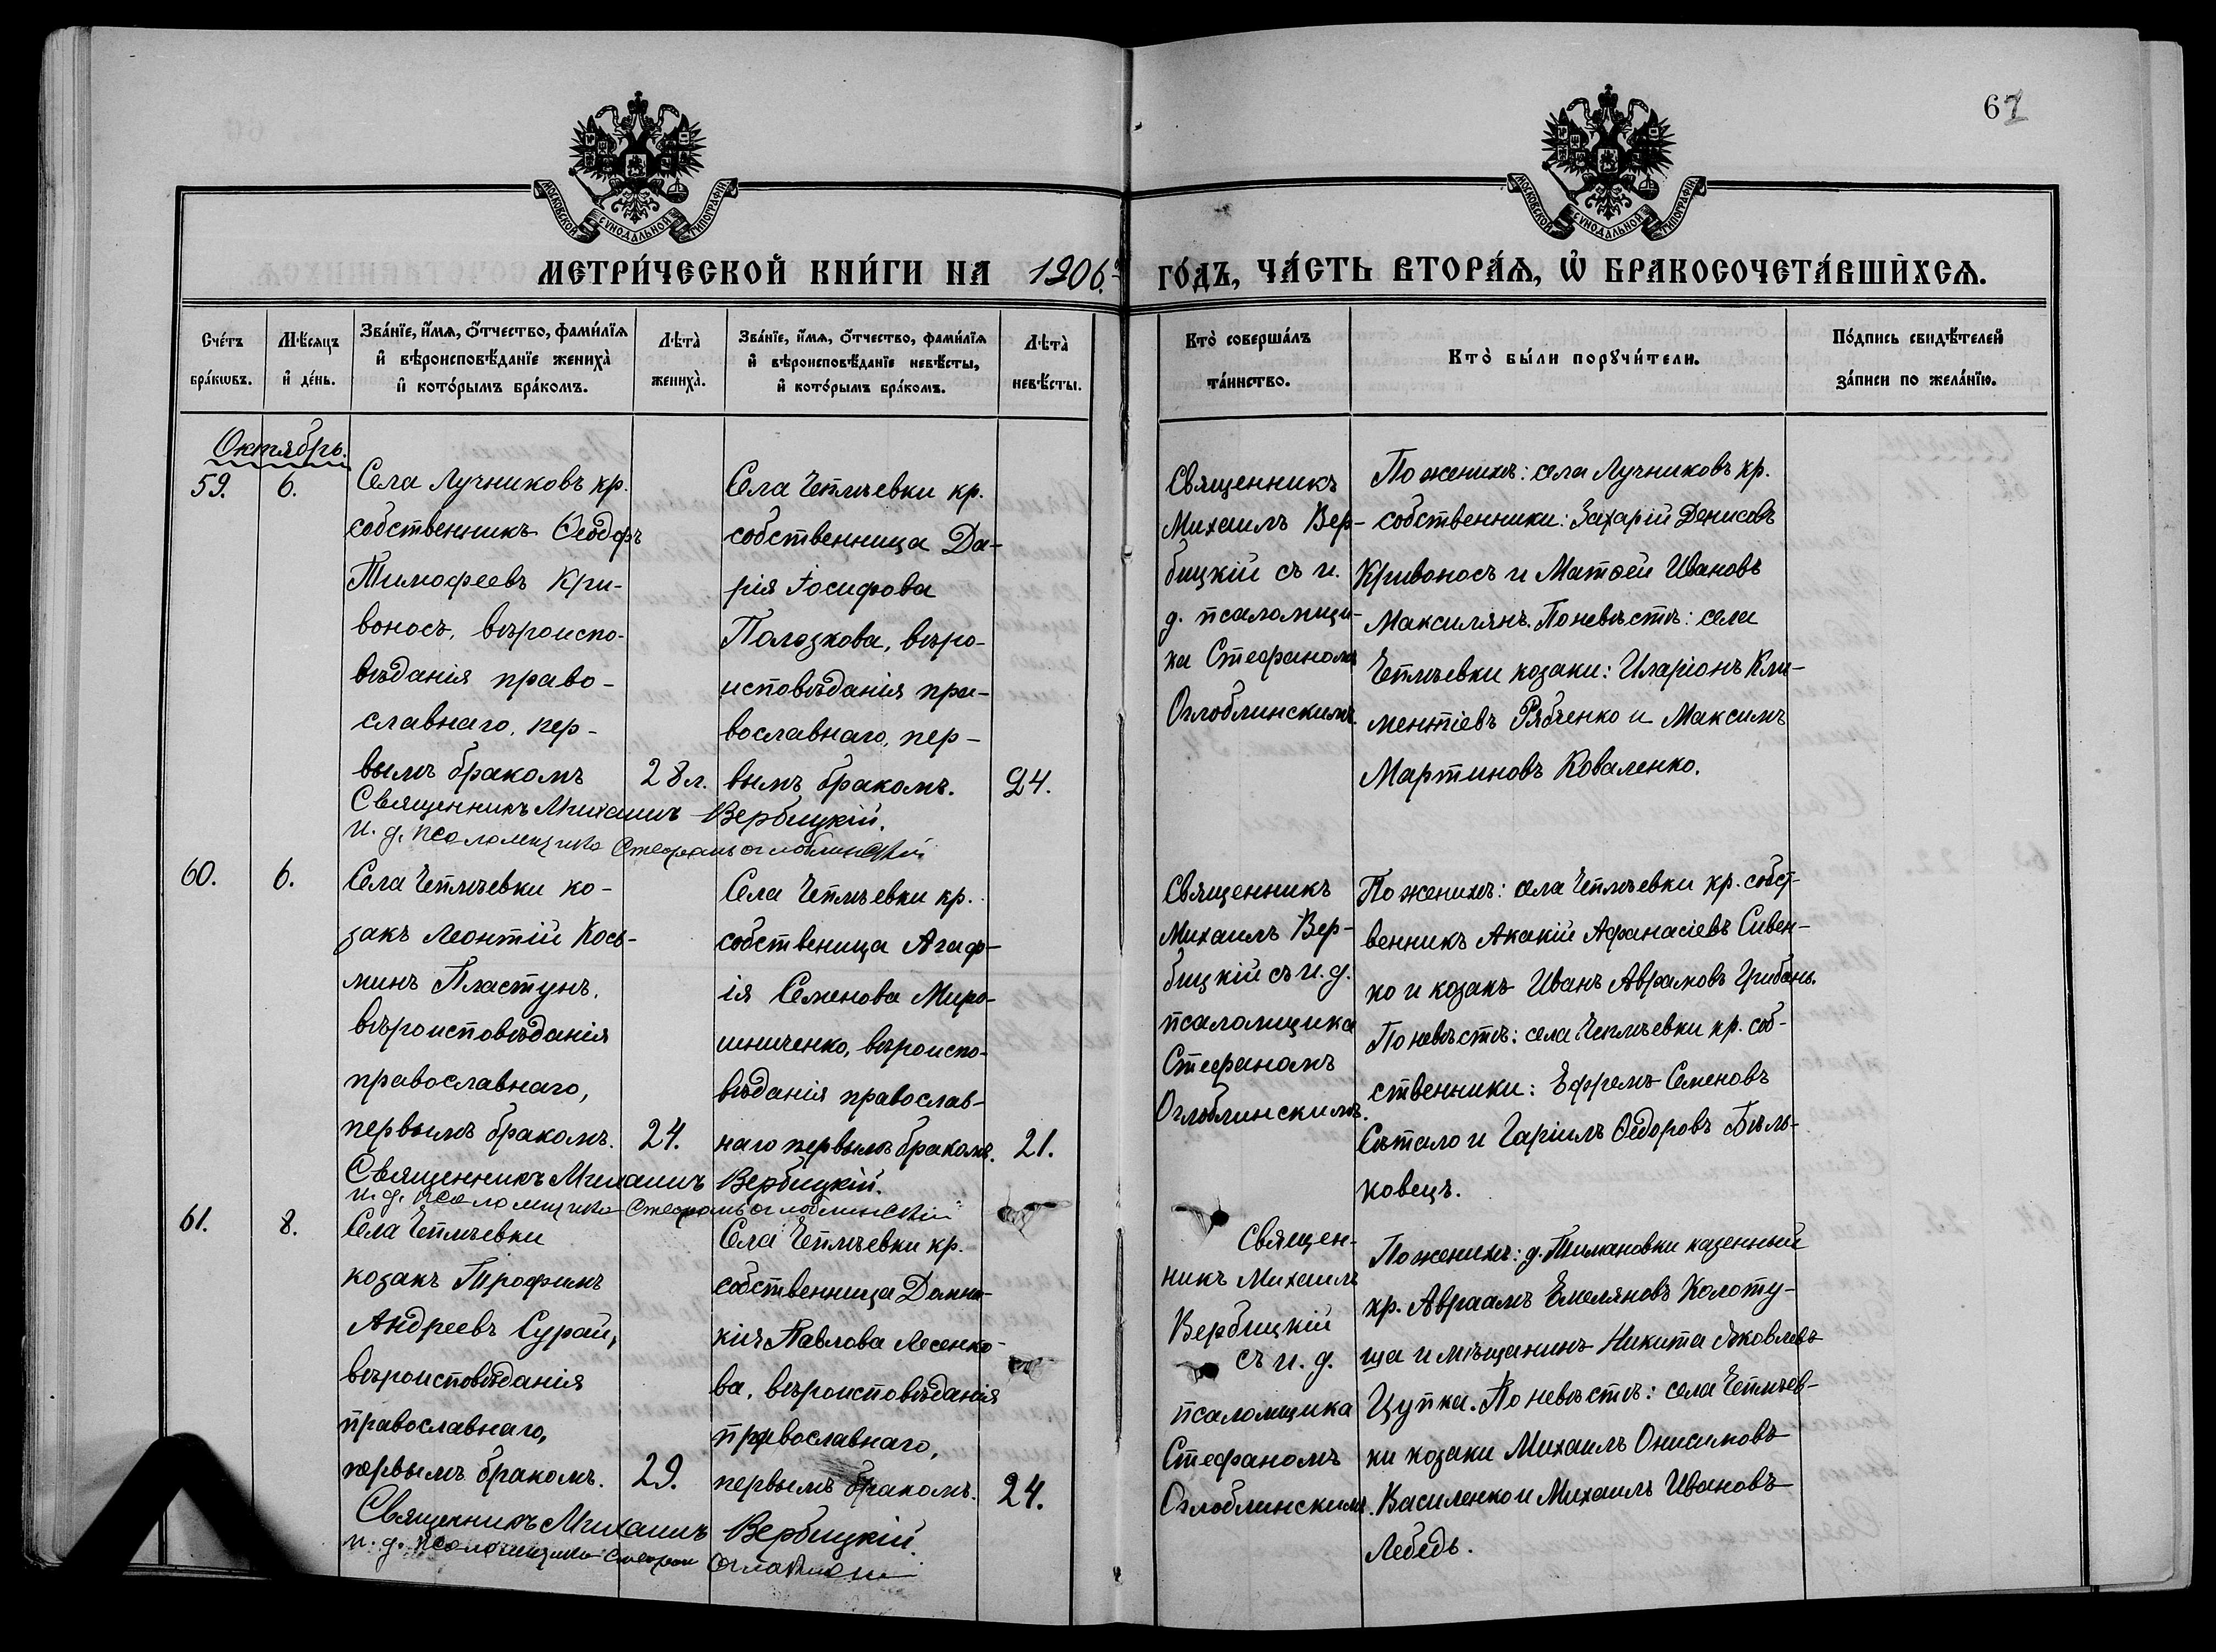 62
МОСКОВСКОЙ СѴНОДАЛЬНОЙ ТИПОГРАФІИ
МОСКОВСКОЙ СѴНОДАЛЬНОЙ ТИПОГРАФІИ
МЕТРИ́ЧЕСКОЙ КНИ́ГИ НА 1906. ГО́ДЪ, ЧА́СТЬ ВТОРА́Ѧ, Ѡ҆ БРАКОСОЧЕТА́ВШИХСѦ.
Сче́тъ
бра́кѡвъ.
Мѣ́сяцъ
и҆ де́нь.
Зва́нїе, и҆́мѧ, ѻ҆́тчество, фами́лїѧ
и҆ вѣроисповѣ́данїе жениха̀
и҆ кото́рымъ бра́комъ.
Лѣта̀
жениха̀.
Зва́нїе, и҆́мѧ, ѻ҆́тчество, фами́лїѧ
и҆ вѣроисповѣ́данїе невѣ́сты,
и҆ кото́рымъ бра́комъ.
Лѣта̀
невѣ́сты.
Кто̀ соверша́лъ
та́инство.
Кто̀ бы́ли порꙋчи́тели.
По́дпись свидѣ́телей
за́писи по жела́нїю.
Октябрь.
59.
6.
Села Лучниковъ кр.
собственникъ Ѳеодоръ
Тимофеевъ Кри-
воносъ, вѣроиспо-
вѣданія право-
славнаго, пер-
вымъ бракомъ
28 л.
Села Чепмъевки кр.
собственница Да-
рія Іосифова
Полозкова, вѣро-
исповѣданія пра-
вославнаго, пер-
вымъ бракомъ.
24.
Священникъ
Михаилъ Вер-
бицкій съ и.
д. псаломщи-
ка Стефаномъ
Оглоблинскимъ
По женихѣ: села Лучниковъ кр.
собственники: Захарій Денисовъ
Кривоносъ и Матѳей Ивановъ
Максилянъ. По невѣстѣ: села
Чепмъевки козаки: Иларіонъ Кли-
ментіевъ Рябченко и Максимъ
Мартиновъ Коваленко.
Священникъ Михаилъ Вербицкій.
и. д. псаломщика Стефанъ Оглоблинскій
60.
6.
Села Чепмъевки ко-
закъ Леонтій Кось-
минъ Пластунъ,
вѣроисповѣданія
православнаго,
первымъ бракомъ.
24.
Села Чепмъевки кр.
собственица Агаф-
ія Семенова Миро-
шниченко, вѣроиспо-
вѣданія православ-
наго первымъ бракомъ.
21.
Священникъ
Михаилъ Вер-
бицкій съ и. д.
псаломщика
Стефаномъ
Оглоблинскимъ.
По женихѣ: села Чепмъевки кр. собст-
венникъ Акакій Афанасіевъ Сивен-
ко и козакъ Иванъ Аврамовъ Грибань.
По невѣстѣ: села Чепмъевки кр. соб-
ственники: Ефремъ Семеновъ
Сѣтало и Гаріилъ Ѳедоровъ Бѣль-
ковецъ.
Священникъ Михаилъ Вербицкій.
и. д. псаломщика Стефанъ Оглоблинскій
61.
8.
Села Чепмъевки
козакъ Трофимъ
Андреевъ Сурай,
вѣроисповѣданія
православнаго,
первымъ бракомъ.
29.
Села Чепмъевки кр.
собственница Домни-
кія Павлова Лесенко-
ва, вѣроисповѣданія
православнаго,
первымъ бракомъ.
24.
Священ-
никъ Михаилъ
Вербицкій
съ и. д.
псаломщика
Стефаномъ
Оглоблинскимъ.
По женихѣ: д. Тимановки казенный
кр. Авраамъ Емеляновъ Колоту-
ша и мѣщанинъ Никита Яковлевъ
Цупка. По невѣстѣ: села Чепмъев-
ки козаки Михаилъ Онисимовъ
Василенко и Михаилъ Ивановъ
Лебедь.
Священникъ Михаилъ Вербицкій.
и. д. псаломщика Стефанъ